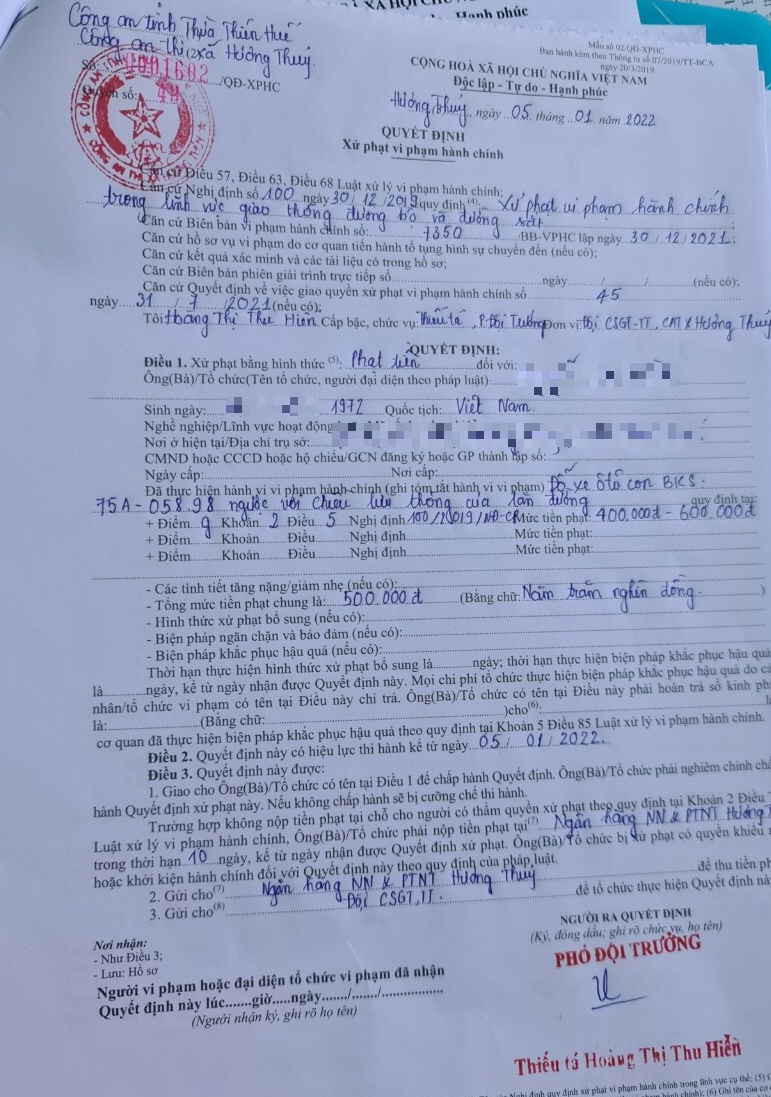 XÃ HỘI
Hanh phúc
Mẫu số 02/QĐ-XPHC
Ban hành kèm theo Thông tư số 07/2019/TT-BCA
ngày 20/3/2019
Công an tỉnh Thừa Thiên Huế
Công an thị xã Hương Thuỷ
Số: 0001602/QĐ-XPHC
Quyển số:
CỘNG HOÀ XÃ HỘI CHỦ NGHĨA VIỆT NAM
Độc lập - Tự do - Hạnh phúc
Hương Thuỷ, ngày 05 tháng 01 năm 2022
QUYẾT ĐỊNH
Xử phạt vi phạm hành chính
Căn cứ Điều 57, Điều 63, Điều 68 Luật xử lý vi phạm hành chính;
Căn cứ Nghị định số 100 ngày 30/12/2019 quy định (4): Xử phạt vi phạm hành chính
trong lĩnh vực giao thông đường bộ và đường sắt;
Căn cứ Biên bản vi phạm hành chính số: 7350/BB-VPHC lập ngày 30/12/2021;
Căn cứ hồ sơ vụ vi phạm do cơ quan tiến hành tố tụng hình sự chuyển đến (nếu có);
Căn cứ kết quả xác minh và các tài liệu có trong hồ sơ;
Căn cứ Biên bản phiên giải trình trực tiếp số ngày / / (nếu có);
Căn cứ Quyết định về việc giao quyền xử phạt vi phạm hành chính số 45
ngày 31/7/2021 (nếu có);
Tôi: Hoàng Thị Thu Hiền Cấp bậc, chức vụ: Thiếu tá, P.Đội Trưởng Đơn vị: Đội CSGT-TT, CATX Hương Thuỷ
QUYẾT ĐỊNH:
Điều 1. Xử phạt bằng hình thức (5): Phạt tiền đối với:
Ông(Bà)/Tổ chức(Tên tổ chức, người đại diện theo pháp luật)
Sinh ngày: 1972 Quốc tịch: Việt Nam
Nghề nghiệp/Lĩnh vực hoạt động
Nơi ở hiện tại/Địa chỉ trụ sở:
CMND hoặc CCCD hoặc hộ chiếu/GCN đăng ký hoặc GP thành lập số:
Ngày cấp: Nơi cấp:
Đã thực hiện hành vi vi phạm hành chính (ghi tóm tắt hành vi vi phạm) Đỗ xe ôtô con BKS:
75A-058.98 ngược với chiều lưu thông của làn đường quy định tại:
+ Điểm g Khoản 2 Điều 5 Nghị định 100/2019/NĐ-CP Mức tiền phạt: 400.000đ - 600.000đ
+ Điểm Khoản Điều Nghị định Mức tiền phạt:
+ Điểm Khoản Điều Nghị định Mức tiền phạt:
- Các tình tiết tăng nặng/giảm nhẹ (nếu có):
- Tổng mức tiền phạt chung là: 500.000đ (Bằng chữ: Năm trăm nghìn đồng. )
- Hình thức xử phạt bổ sung (nếu có):
- Biện pháp ngăn chặn và bảo đảm (nếu có):
- Biện pháp khắc phục hậu quả (nếu có):
Thời hạn thực hiện hình thức xử phạt bổ sung là ngày; thời hạn thực hiện biện pháp khắc phục hậu quả
là ngày, kể từ ngày nhận được Quyết định này. Mọi chi phí tổ chức thực hiện biện pháp khắc phục hậu quả do cá
nhân/tổ chức vi phạm có tên tại Điều này chi trả. Ông(Bà)/Tổ chức có tên tại Điều này phải hoàn trả số kinh ph
là: (Bằng chữ: )cho(6):
cơ quan đã thực hiện biện pháp khắc phục hậu quả theo quy định tại Khoản 5 Điều 85 Luật xử lý vi phạm hành chính.
Điều 2. Quyết định này có hiệu lực thi hành kể từ ngày 05/01/2022.
Điều 3. Quyết định này được:
1. Giao cho Ông(Bà)/Tổ chức có tên tại Điều 1 để chấp hành Quyết định. Ông(Bà)/Tổ chức phải nghiêm chỉnh chấ
hành Quyết định xử phạt này. Nếu không chấp hành sẽ bị cưỡng chế thi hành.
Trường hợp không nộp tiền phạt tại chỗ cho người có thẩm quyền xử phạt theo quy định tại Khoản 2 Điều
Luật xử lý vi phạm hành chính, Ông(Bà)/Tổ chức phải nộp tiền phạt tại(7) Ngân hàng NN & PTNT Hương T
trong thời hạn 10 ngày, kể từ ngày nhận được Quyết định xử phạt. Ông(Bà)/Tổ chức bị xử phạt có quyền khiếu
hoặc khởi kiện hành chính đối với Quyết định này theo quy định của pháp luật.
2. Gửi cho(7) Ngân hàng NN & PTNT Hương Thuỷ để thu tiền ph
3. Gửi cho(8) Đội CSGT,TT. để tổ chức thực hiện Quyết định nà
Nơi nhận:
- Như Điều 3;
- Lưu: Hồ sơ
NGƯỜI RA QUYẾT ĐỊNH
(Ký, đóng dấu; ghi rõ chức vụ, họ tên)
PHÓ ĐỘI TRƯỞNG
Người vi phạm hoặc đại diện tổ chức vi phạm đã nhận
Quyết định này lúc.......giờ.....ngày......./......./.................
(Người nhận ký, ghi rõ họ tên)
Thiếu tá Hoàng Thị Thu Hiền
Nghị định quy định xử phạt vi phạm hành chính trong lĩnh vực cụ thể; (5) G
hành chính); (6) Ghi tên của cơ